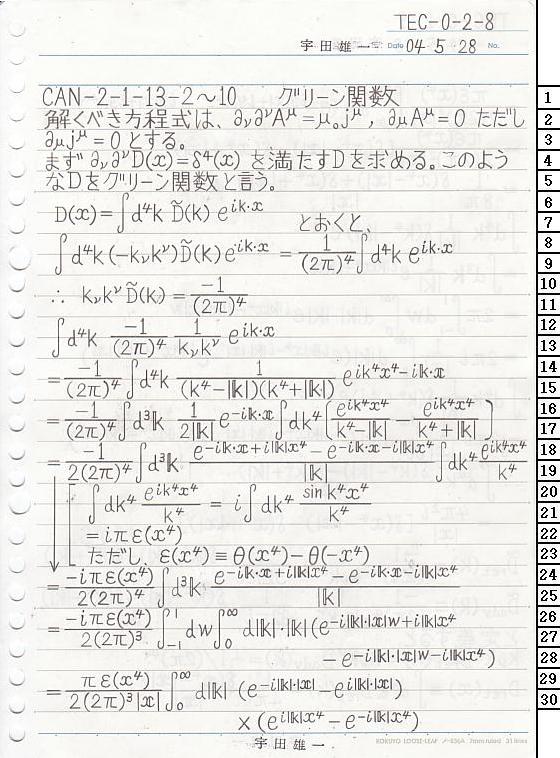 TEC-0-2-8
宇田雄一 Date 04 5 28 No.
CAN-2-1-13-2～10 グリーン関数
解くべき方程式は、∂ν∂^νA^μ=μ₀j^μ, ∂μA^μ=0 ただし
∂μj^μ=0 とする。
まず ∂ν∂^νD(x)=δ⁴(x) を満たすDを求める。このよう
なDをグリーン関数と言う。
D(x)=∫d⁴k D̃(k) e^{ik·x} とおくと、
∫d⁴k(-kνk^ν)D̃(k)e^{ik·x} = 1/(2π)⁴ ∫d⁴k e^{ik·x}
∴ kνk^ν D̃(k) = -1/(2π)⁴
∫d⁴k -1/(2π)⁴ 1/(kνk^ν) e^{ik·x}
= -1/(2π)⁴ ∫d⁴k 1/((k⁴-|𝕜|)(k⁴+|𝕜|)) e^{ik⁴x⁴-i𝕜·𝕩}
= -1/(2π)⁴ ∫d³𝕜 1/(2|𝕜|) e^{-i𝕜·𝕩} ∫dk⁴ [e^{ik⁴x⁴}/(k⁴-|𝕜|) - e^{ik⁴x⁴}/(k⁴+|𝕜|)]
= -1/(2(2π)⁴) ∫d³𝕜 (e^{-i𝕜·𝕩+i|𝕜|x⁴} - e^{-i𝕜·𝕩-i|𝕜|x⁴})/|𝕜| ∫dk⁴ e^{ik⁴x⁴}/k⁴
∫dk⁴ e^{ik⁴x⁴}/k⁴ = i∫dk⁴ sin k⁴x⁴/k⁴
= iπε(x⁴)
ただし、ε(x⁴)≡θ(x⁴)-θ(-x⁴)
= -iπε(x⁴)/(2(2π)⁴) ∫d³𝕜 (e^{-i𝕜·𝕩+i|𝕜|x⁴} - e^{-i𝕜·𝕩-i|𝕜|x⁴})/|𝕜|
= -iπε(x⁴)/(2(2π)³) ∫₋₁¹dw∫₀^∞ d|𝕜|·|𝕜|(e^{-i|𝕜|·|𝕩|w+i|𝕜|x⁴}
- e^{-i|𝕜|·|𝕩|w-i|𝕜|x⁴})
= πε(x⁴)/(2(2π)³|𝕩|) ∫₀^∞ d|𝕜| (e^{-i|𝕜|·|𝕩|} - e^{i|𝕜|·|𝕩|})
×(e^{i|𝕜|x⁴} - e^{-i|𝕜|x⁴})
宇田雄一
KOKUYO LOOSE-LEAF ノ-836A 7mm ruled 31 lines
1
2
3
4
5
6
7
8
9
10
11
12
13
14
15
16
17
18
19
20
21
22
23
24
25
26
27
28
29
30